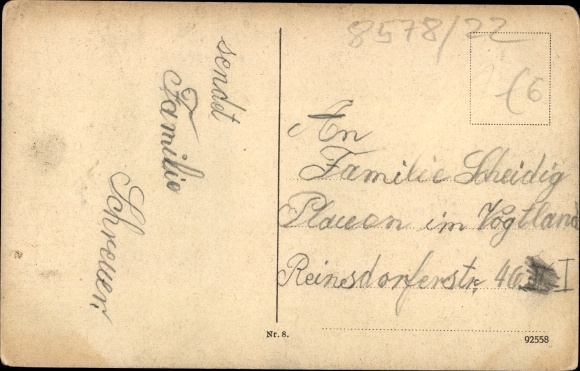 8578/22
(6
sendt
Familie
Schreuer.
An
Familie Scheidig
Plauen im Vogtland
Reinsdorferstr. 40 I
Nr. 8.
92558